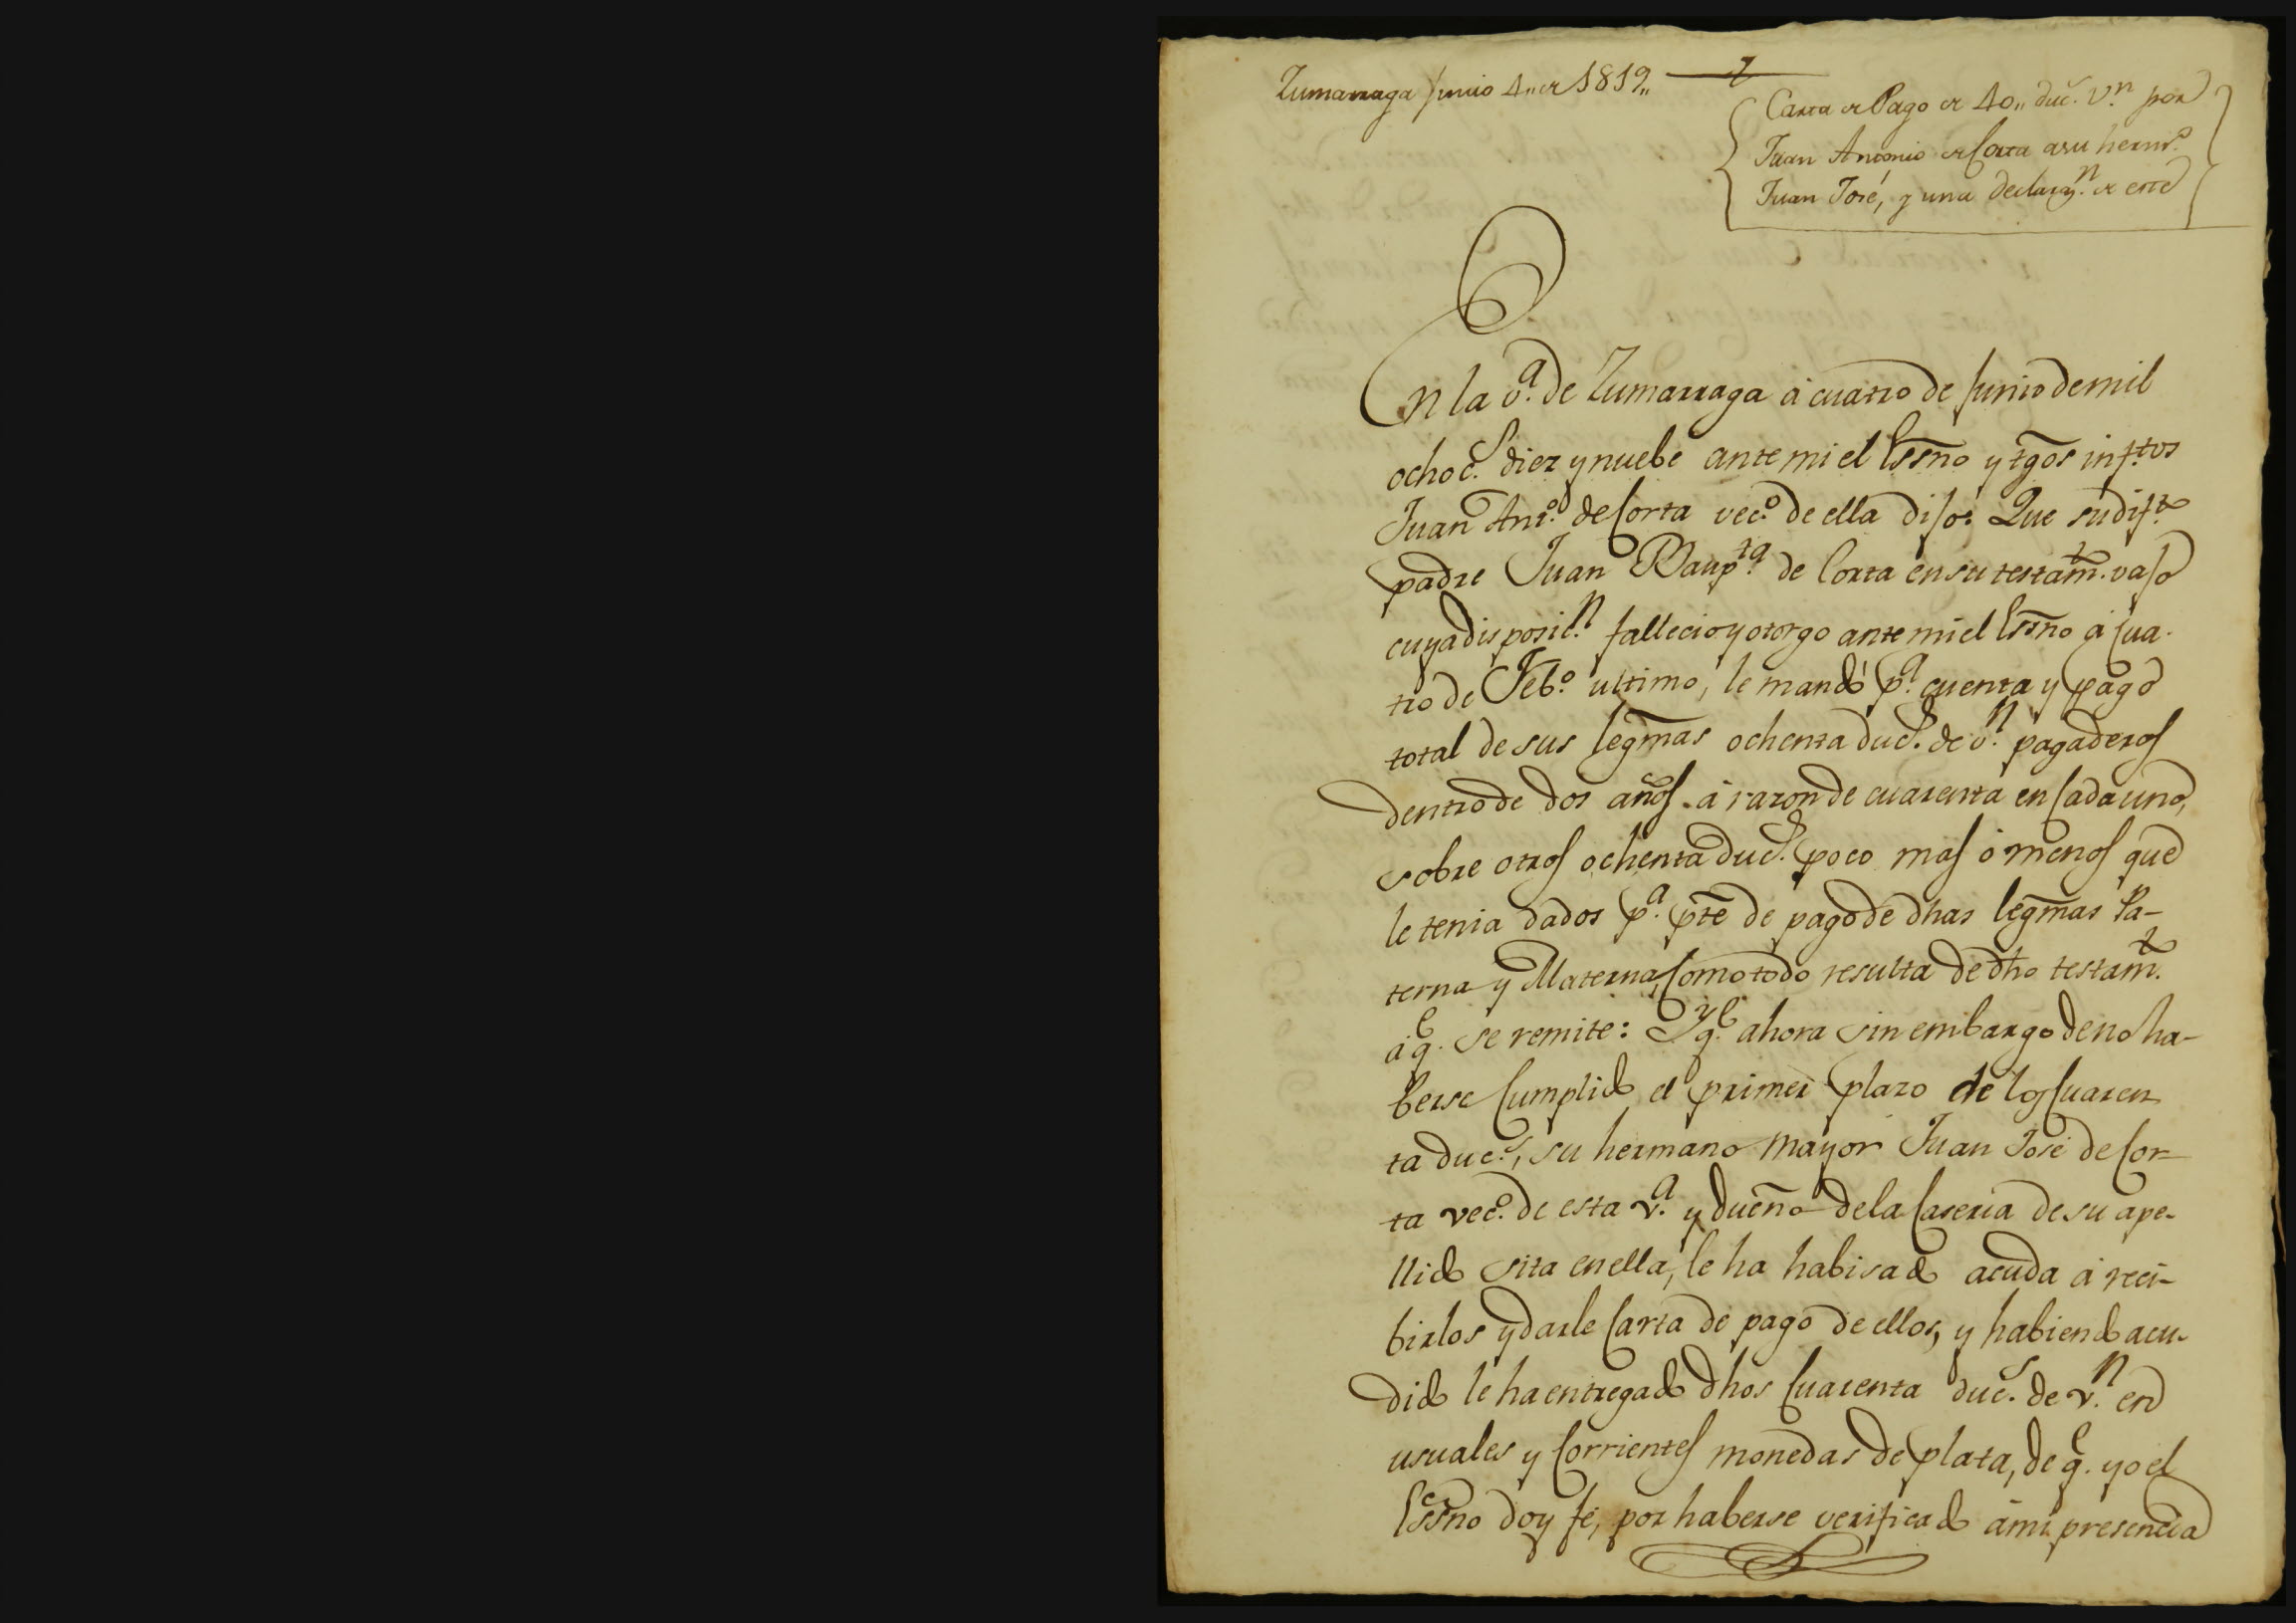 Zumarraga Junio 4,, de 1819,,
Carta de Pago de 40,, duc.s v.n por
Juan Antonio de Corta a su herm.o
Juan José, y una declaraz.n de este
En la v.a de Zumarraga á cuatro de Junio de mil
ochoc.s diez y nuebe ante mi el Essno y tgos inf.tos
Juan Ant.o de Corta vec.o de ella dijo: Que su dif.to
padre Juan Baup.ta de Corta en su testam.to vajo
cuya disposic.n fallecio y otorgo ante mi el Essno á cua-
tro de Feb.o ultimo, le mandó p.a cuenta y pago
total de sus legmas ochenta duc.s de v.n pagaderos
dentro de dos años á razon de cuarenta en cada uno,
sobre otros ochenta duc.s poco mas ó menos que
le tenia dados p.a pte de pago de dhas legmas Pa-
terna y Materna, como todo resulta de dho testam.to
á q.e se remite: Y q.e ahora sin embargo de no ha-
berse cumplido el primer plazo de los cuaren
ta duc.s, su hermano mayor Juan José de Cor-
ta vec.o de esta v.a y dueño de la Caseria de su ape-
llido sita en ella, le ha habisado acuda á reci-
birlos y darle carta de pago de ellos, y habiendo acu-
dido le ha entregado dhos cuarenta duc.s de v.n en
usuales y corrientes monedas de plata, de q.e yo el
Essno doy fé, por haberse verificado á mi presencia